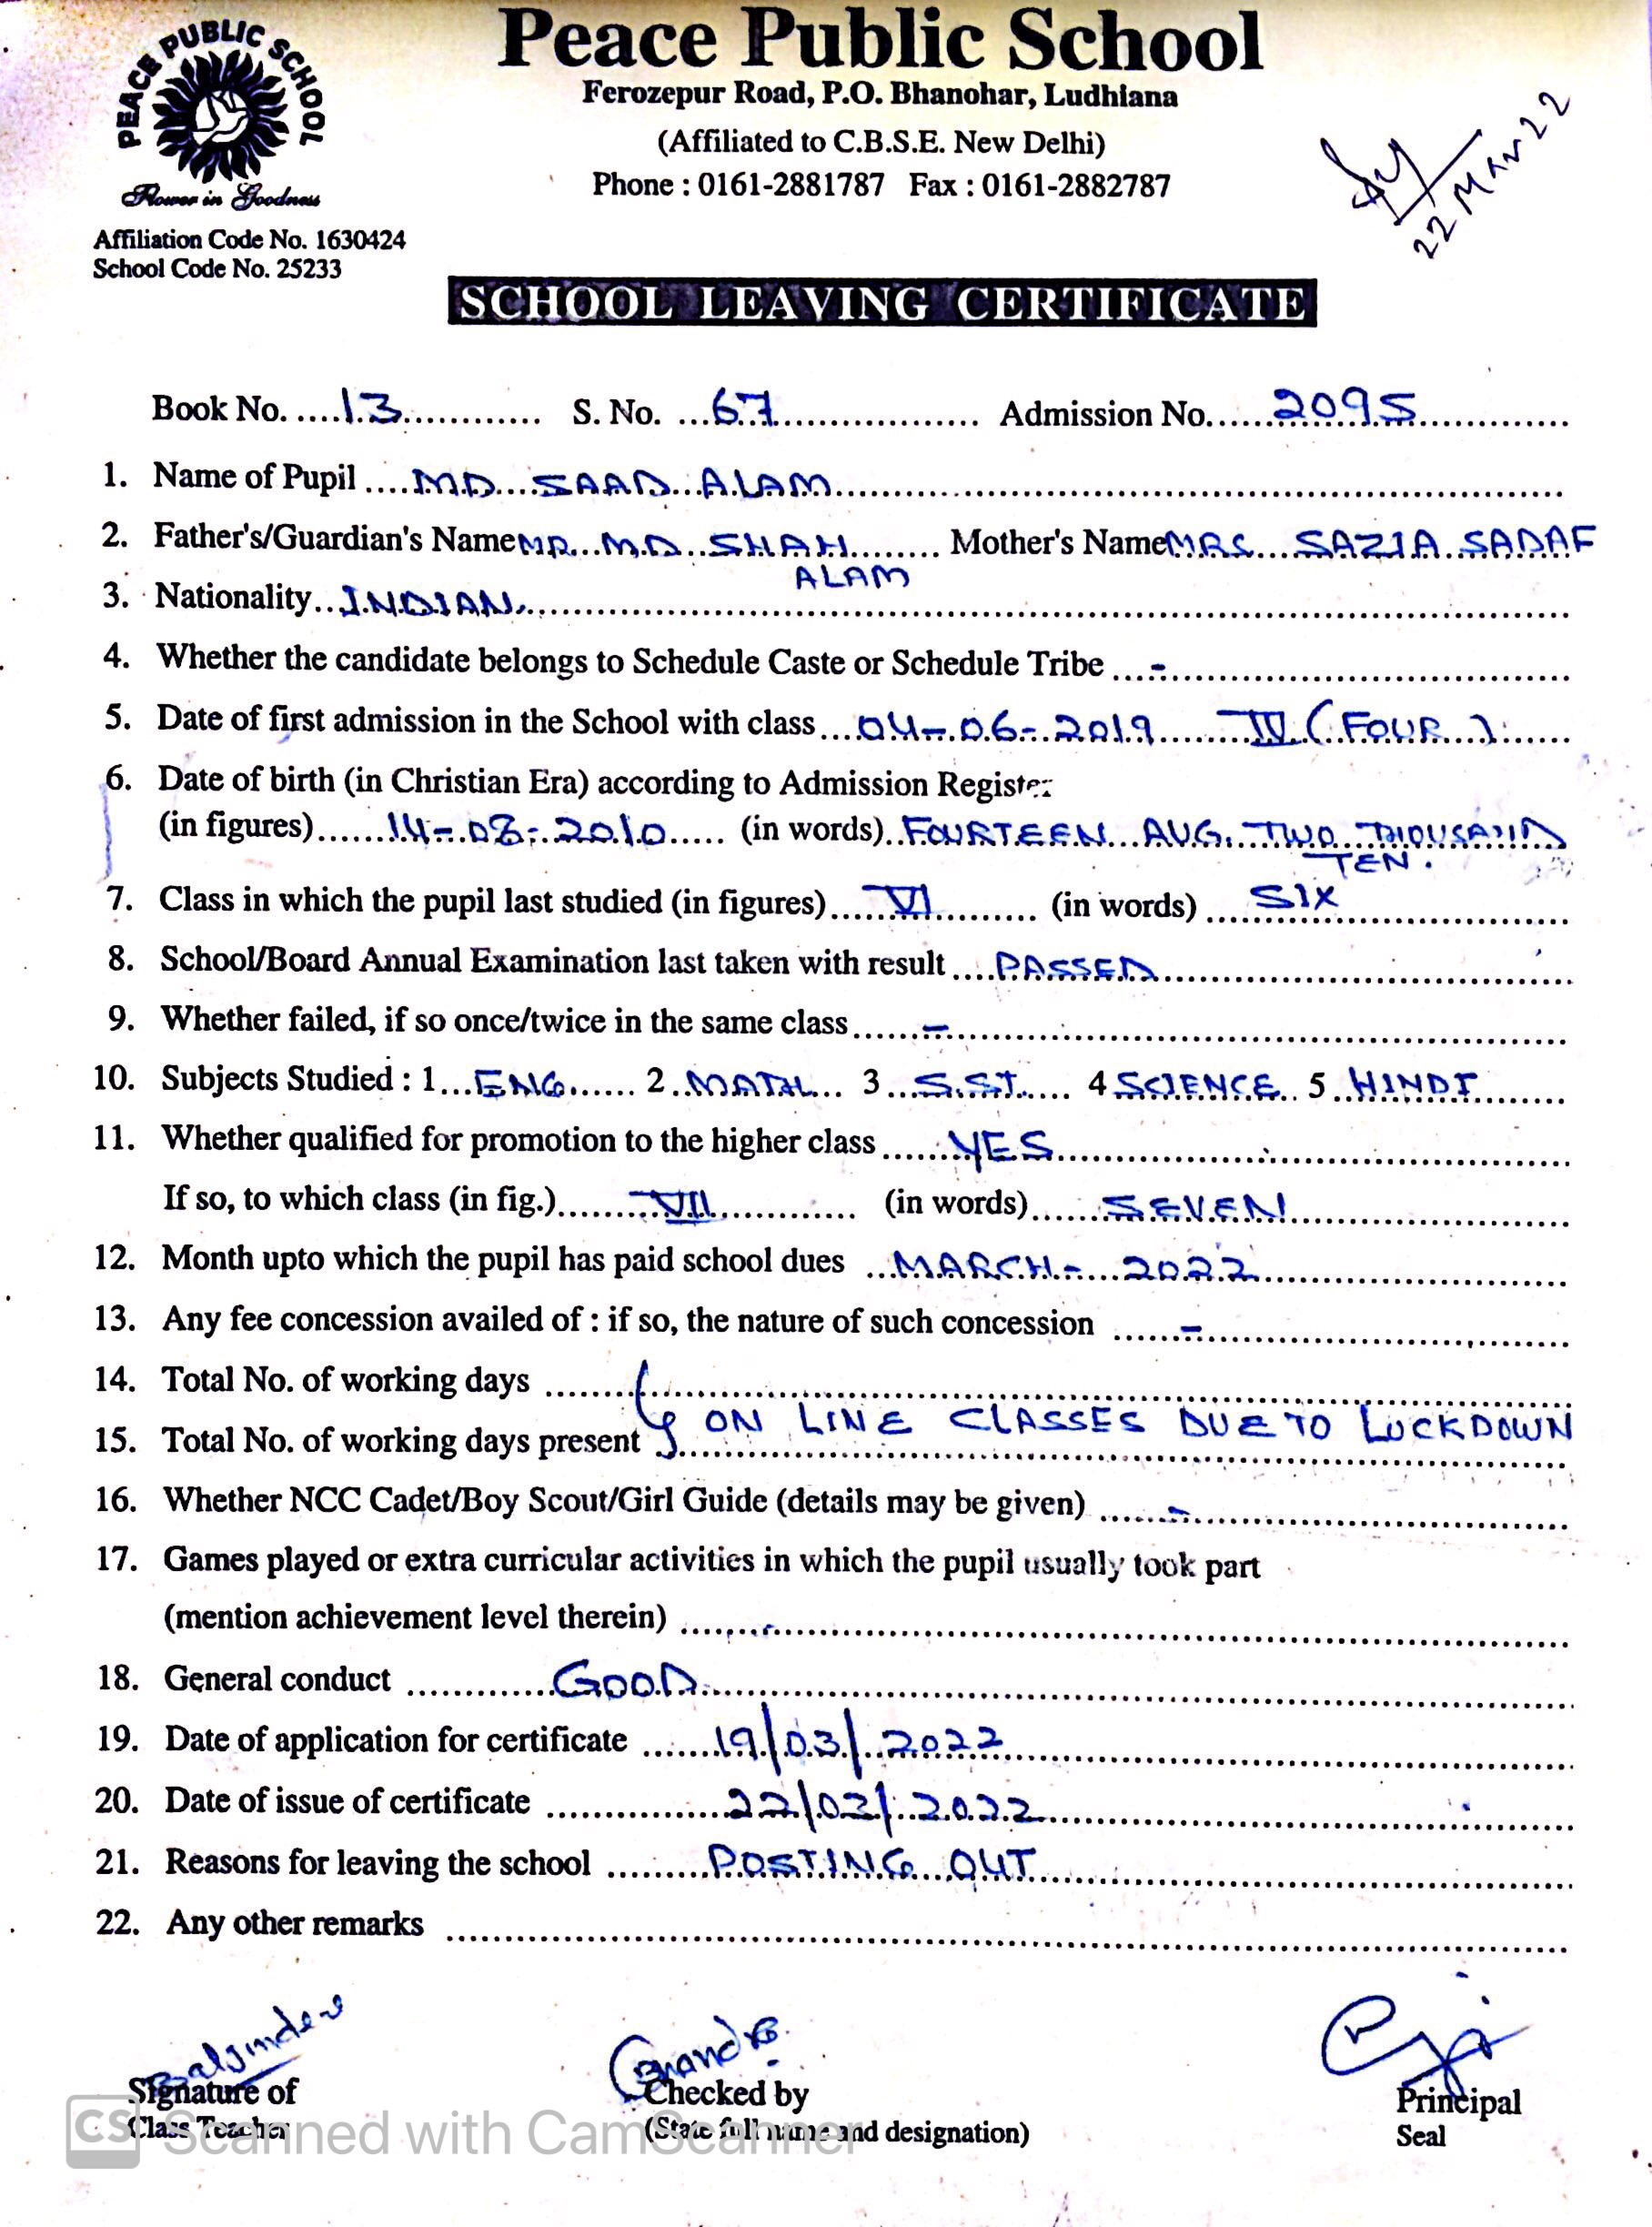 PEACE PUBLIC SCHOOL
Power in Goodness
Affiliation Code No. 1630424
School Code No. 25233
Peace Public School
Ferozepur Road, P.O. Bhanohar, Ludhiana
(Affiliated to C.B.S.E. New Delhi)
Phone : 0161-2881787 Fax : 0161-2882787
22 Mar 22
SCHOOL LEAVING CERTIFICATE
Book No. 13 S. No. 67 Admission No. 2095
1. Name of Pupil MD SAAD ALAM
2. Father's/Guardian's Name MR. MD SHAH ALAM Mother's Name MRS SAZIA SADAF
3. Nationality INDIAN
4. Whether the candidate belongs to Schedule Caste or Schedule Tribe -
5. Date of first admission in the School with class 04-06-2019 IV (FOUR)
6. Date of birth (in Christian Era) according to Admission Register
(in figures) 14-08-2010 (in words) FOURTEEN AUG. TWO THOUSAND TEN.
7. Class in which the pupil last studied (in figures) VI (in words) SIX
8. School/Board Annual Examination last taken with result PASSED
9. Whether failed, if so once/twice in the same class -
10. Subjects Studied : 1 ENG 2 MATH 3 S.ST. 4 SCIENCE 5 HINDI
11. Whether qualified for promotion to the higher class YES
If so, to which class (in fig.) VII (in words) SEVEN
12. Month upto which the pupil has paid school dues MARCH - 2022
13. Any fee concession availed of : if so, the nature of such concession -
14. Total No. of working days
ON LINE CLASSES DUE TO LOCKDOWN
15. Total No. of working days present
16. Whether NCC Cadet/Boy Scout/Girl Guide (details may be given) -
17. Games played or extra curricular activities in which the pupil usually took part
(mention achievement level therein) -
18. General conduct GOOD
19. Date of application for certificate 19/03/2022
20. Date of issue of certificate 22/03/2022
21. Reasons for leaving the school POSTING OUT
22. Any other remarks
Baljinder
Signature of
Class Teacher
Checked by
(State full name and designation)
Principal
Seal
CS Scanned with CamScanner